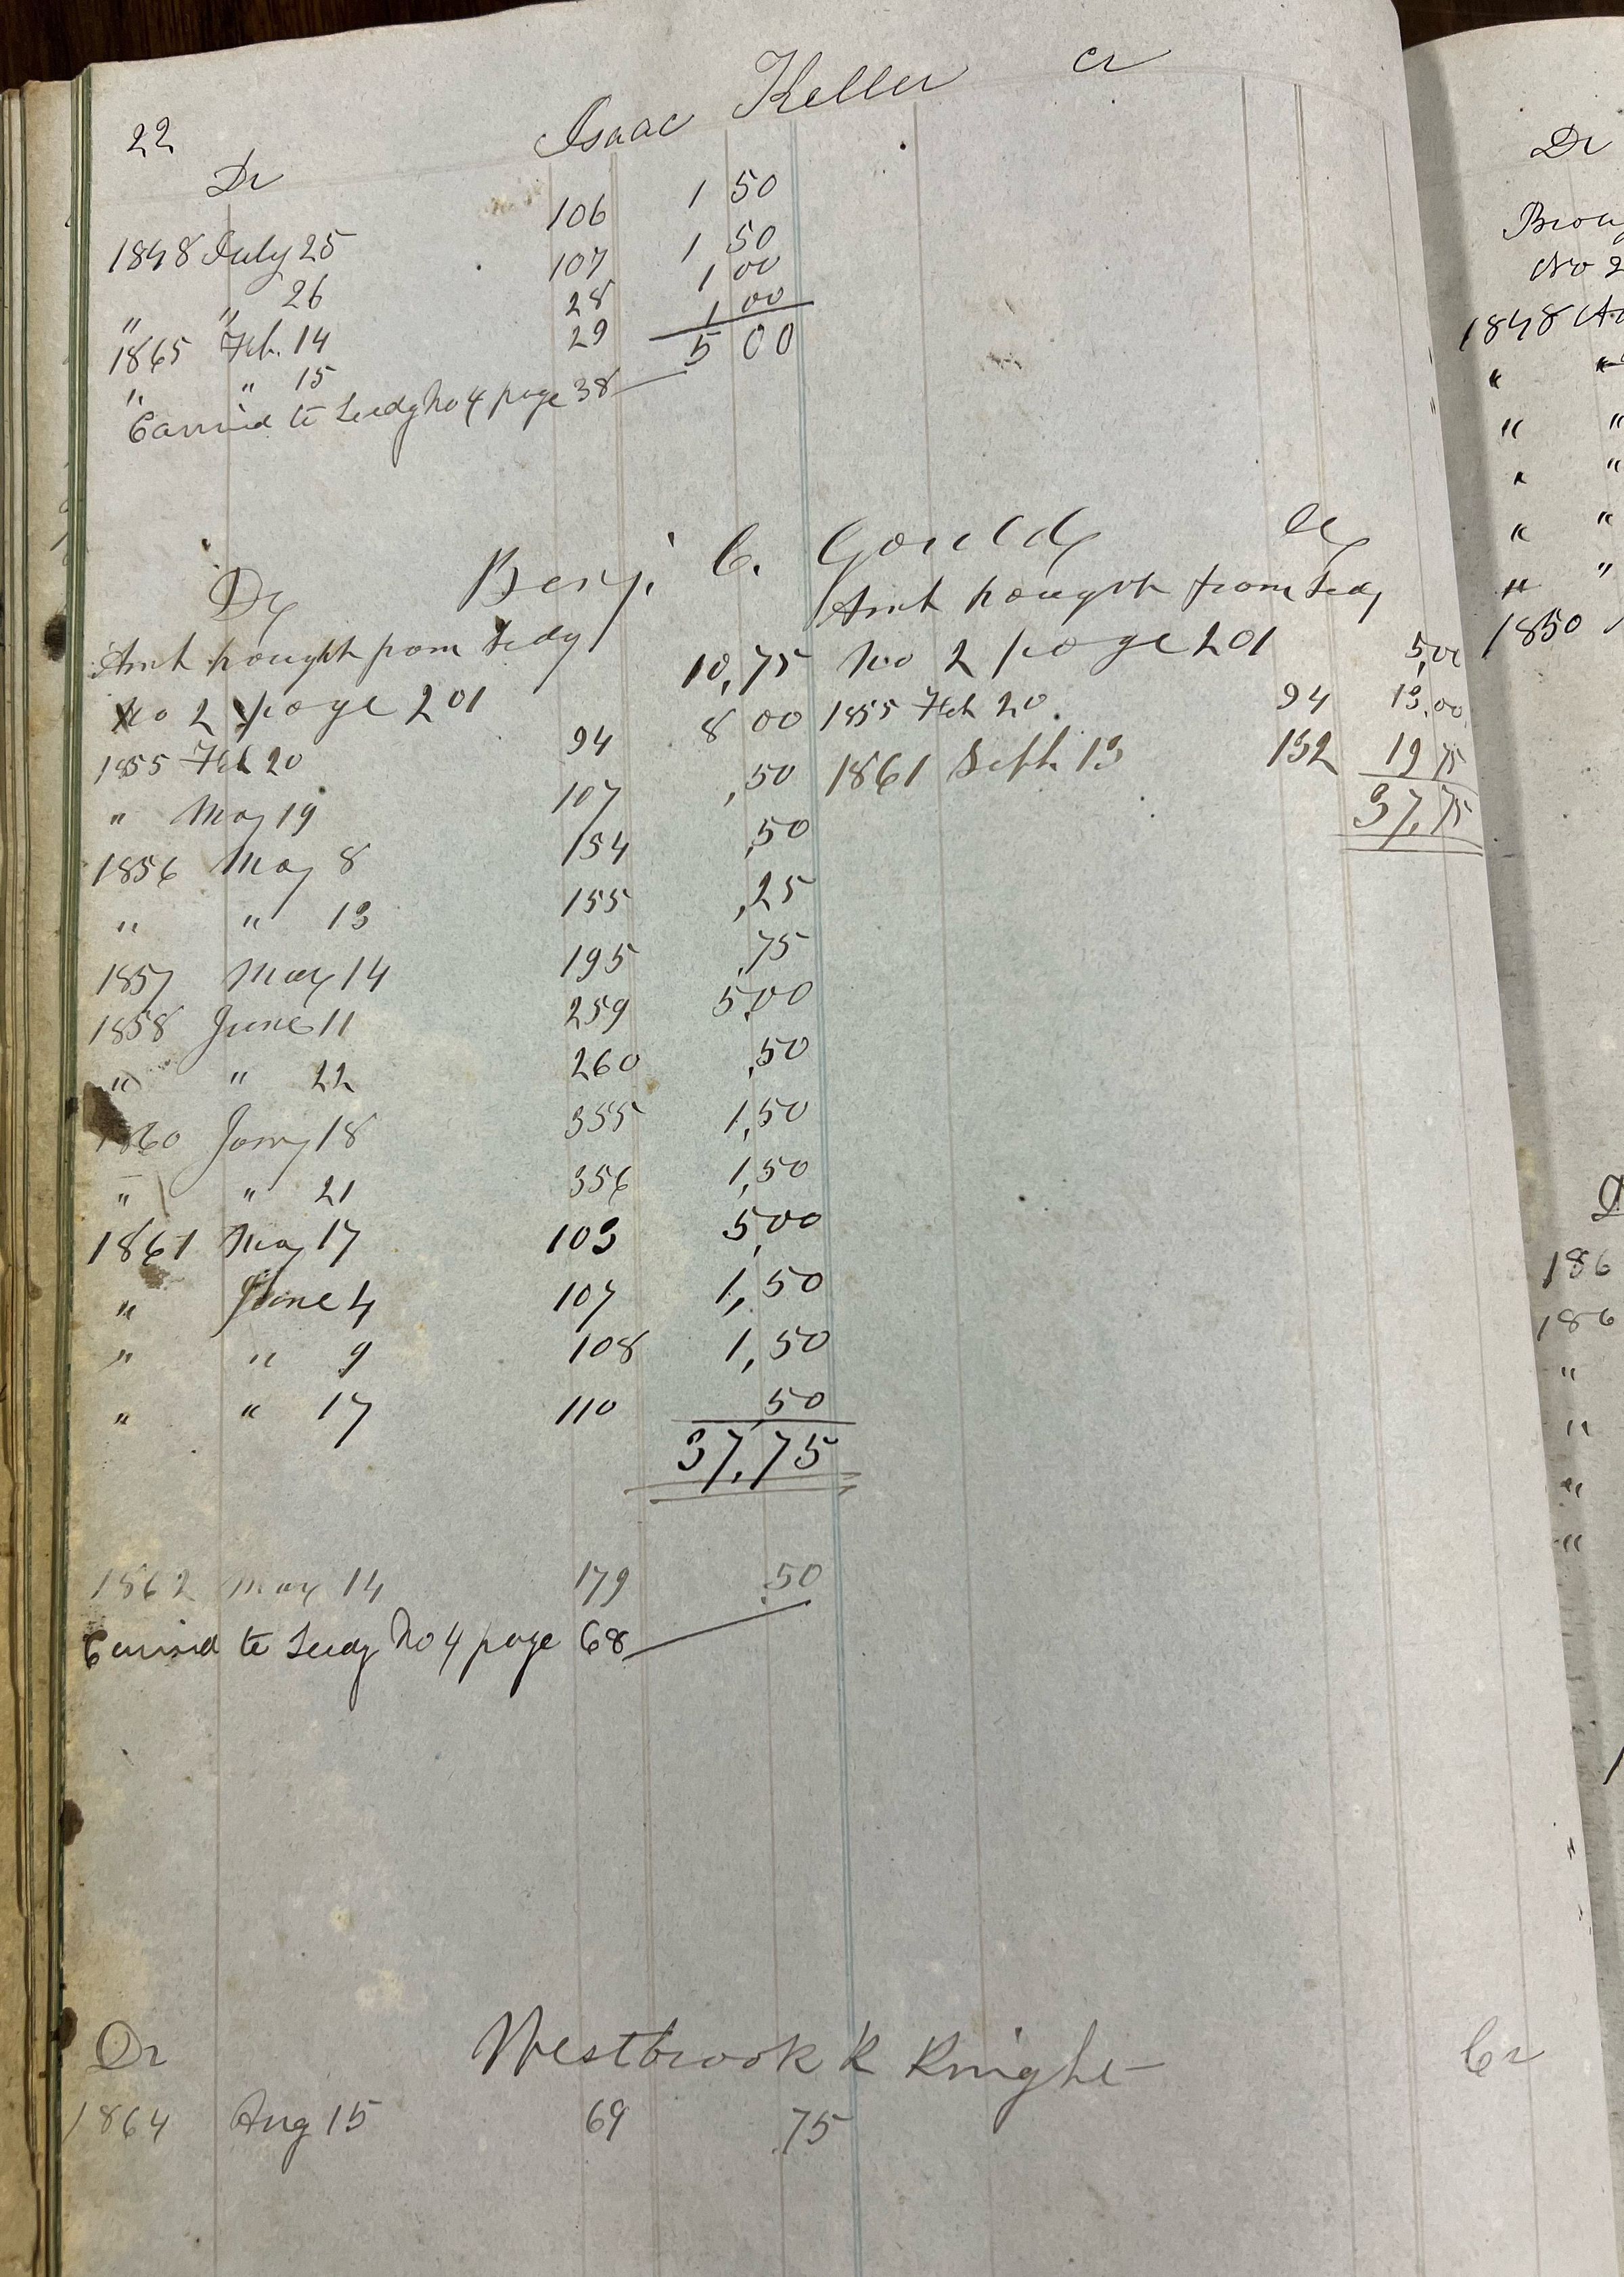 22
Isaac Keller Cr
Dr
1848 July 25 106 1 50
" " 26 107 1 50
1865 Feb. 14 28 1 00
" " 15 29 1 00
5 00
Carried to Ledg No 4 page 38
Dr Benj. C. Gould Cr
Amt brought from Ledg
No 2 page 201 10,75
1855 Feb 20 94 8 00
" May 19 107 ,50
1856 May 8 154 ,50
" " 13 155 ,25
1857 May 14 195 ,75
1858 June 11 259 5,00
" " 22 260 ,50
1860 Jany 18 355 1,50
" " 21 356 1,50
1861 May 17 103 5,00
" June 4 107 1,50
" " 9 108 1,50
" " 17 110 ,50
37,75
Amt brought from Ledg
No 2 page 201 5,00
1855 Feb 20 94 13,00
1861 Sept. 13 132 19 75
37,75
1862 May 14 179 .50
Carried to Ledg No 4 page 68
Dr Westbrook K Knight Cr
1864 Aug 15 69 .75
Dr
No 2
1848
"
" "
" "
" "
" "
1850
186
186
"
"
"
"